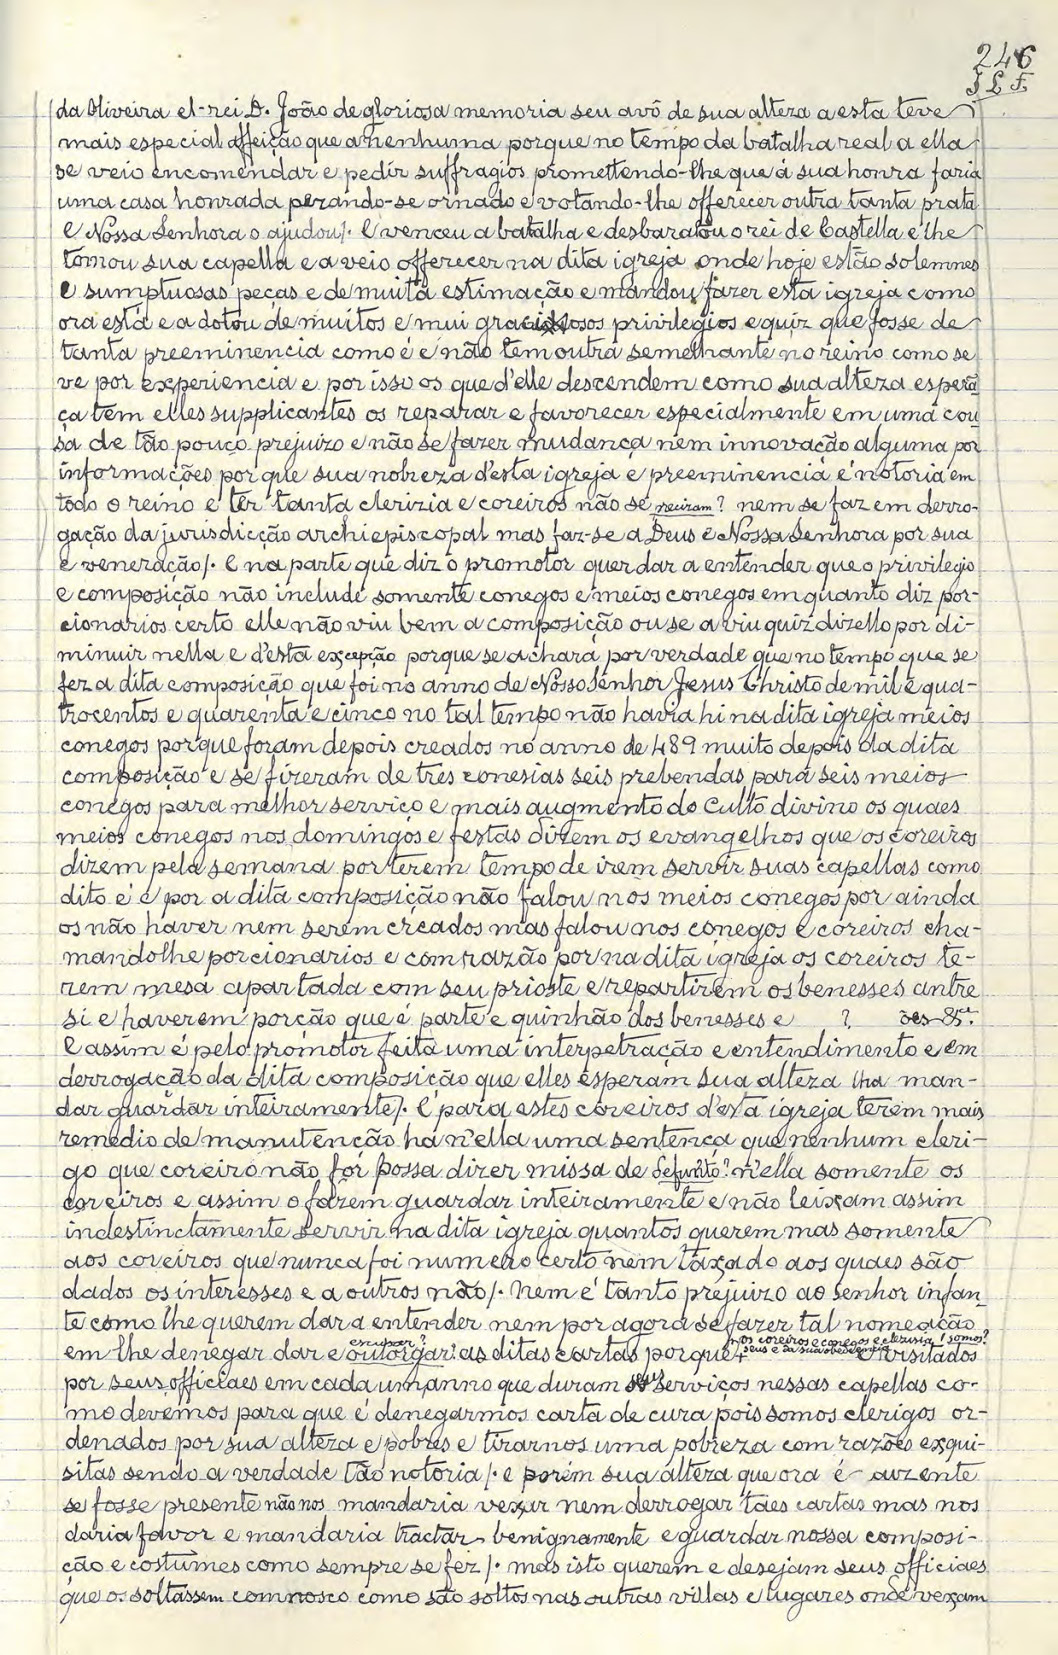 246
J L F.
da Oliveira el-rei D. João de gloriosa memoria seu avô de sua alteza a esta teve
mais especial affeição que a nenhuma porque no tempo da batalha real a ella
se veio encomendar e pedir suffragios promettendo-lhe que á sua honra faria
uma casa honrada pezando-se ornado e votando-lhe offerecer outra tanta prata
e Nossa Senhora o ajudou/. E venceu a batalha e desbaratou o rei de Castella e lhe
tomou sua capella e a veio offerecer na dita igreja onde hoje estão solemnes
e sumptuosas peças e de muita estimação e mandou fazer esta igreja como
ora está e a dotou de muitos e mui graciosos privilegios e quiz que fosse de
tanta preeminencia como é e não tem outra semelhante no reino como se
ve por experiencia e por isso os que d'elle descendem como sua alteza esperã
ça tem elles supplicantes os reparar e favorecer especialmente em uma cou
sa de tão pouco prejuizo e não se fazer mudança nem innovação alguma por
informações por que sua nobreza d'esta igreja e preeminencia é notoria em
todo o reino e ter tanta clerizia e coreiros não se ? nem se faz em derro-
gação da jurisdicção archiepiscopal mas faz-se a Deus e Nossa Senhora por sua
e veneração/. E na parte que diz o promotor quer dar a entender que o privilegio
e composição não include somente conegos e meios conegos em quanto diz por-
cionarios certo elle não viu bem a composição ou se a viu quiz dizello por di-
minuir nella e d'esta excepção porque se achará por verdade que no tempo que se
fez a dita composição que foi no anno de Nosso Senhor Jesus Christo de mil e qua-
trocentos e quarenta e cinco no tal tempo não havia hi na dita igreja meios
conegos porque foram depois creados no anno de 489 muito depois da dita
composição e se fizeram de tres conesias seis prebendas para seis meios
conegos para melhor serviço e mais augmento do culto divino os quaes
meios conegos nos domingos e festas dizem os evangelhos que os coreiros
dizem pela semana por terem tempo de irem servir suas capellas como
dito é e por a dita composição não falou nos meios conegos por ainda
os não haver nem serem creados mas falou nos conegos e coreiros cha-
mandolhe porcionarios e com razão por na dita igreja os coreiros te-
rem mesa apartada com seu prioste e repartirem os benesses antre
si e haverem porção que é parte e quinhão dos benesses e ? ões &ª.
E assim é pelo promotor feita uma interpetração e entendimento e em
derrogação da dita composição que elles esperam sua alteza lha man-
dar guardar inteiramente/. E para estes coreiros d'esta igreja terem mais
remedio de manutenção ha n'ella uma sentença que nenhum cleri-
go que coreiro não for possa dizer missa de defunto? n'ella somente os
coreiros e assim o fazem guardar inteiramente e não leixam assim
indestinctamente servir na dita igreja quantos querem mas somente
aos coreiros que nunca foi numero certo nem taxado aos quaes são
dados os interesses e a outros não/. Nem é tanto prejuizo ao senhor infan_
te como lhe querem dar a entender nem por agora se fazer tal nomeação
escusar? nos coreiros e conegos e clerizia / somos?
em lhe denegar dar e outorgar? as ditas cartas porque + seus e da sua obediencia e visitados
por seus officiaes em cada um anno que duram seus serviços nessas capellas co-
mo devemos para que é denegarmos carta de cura pois somos clerigos or-
denados por sua alteza e pobres e tirarnos uma pobreza com razões exqui-
sitas sendo a verdade tão notoria/. e porém sua alteza que ora é auzente
se fosse presente não nos mandaria vexar nem derrogar taes cartas mas nos
daria favor e mandaria tractar benignamente e guardar nossa composi-
ção e costumes como sempre se fez/. mas isto querem e desejam seus officiaes
que os soltassem comnosco como são soltos nas outras villas e lugares onde vexam